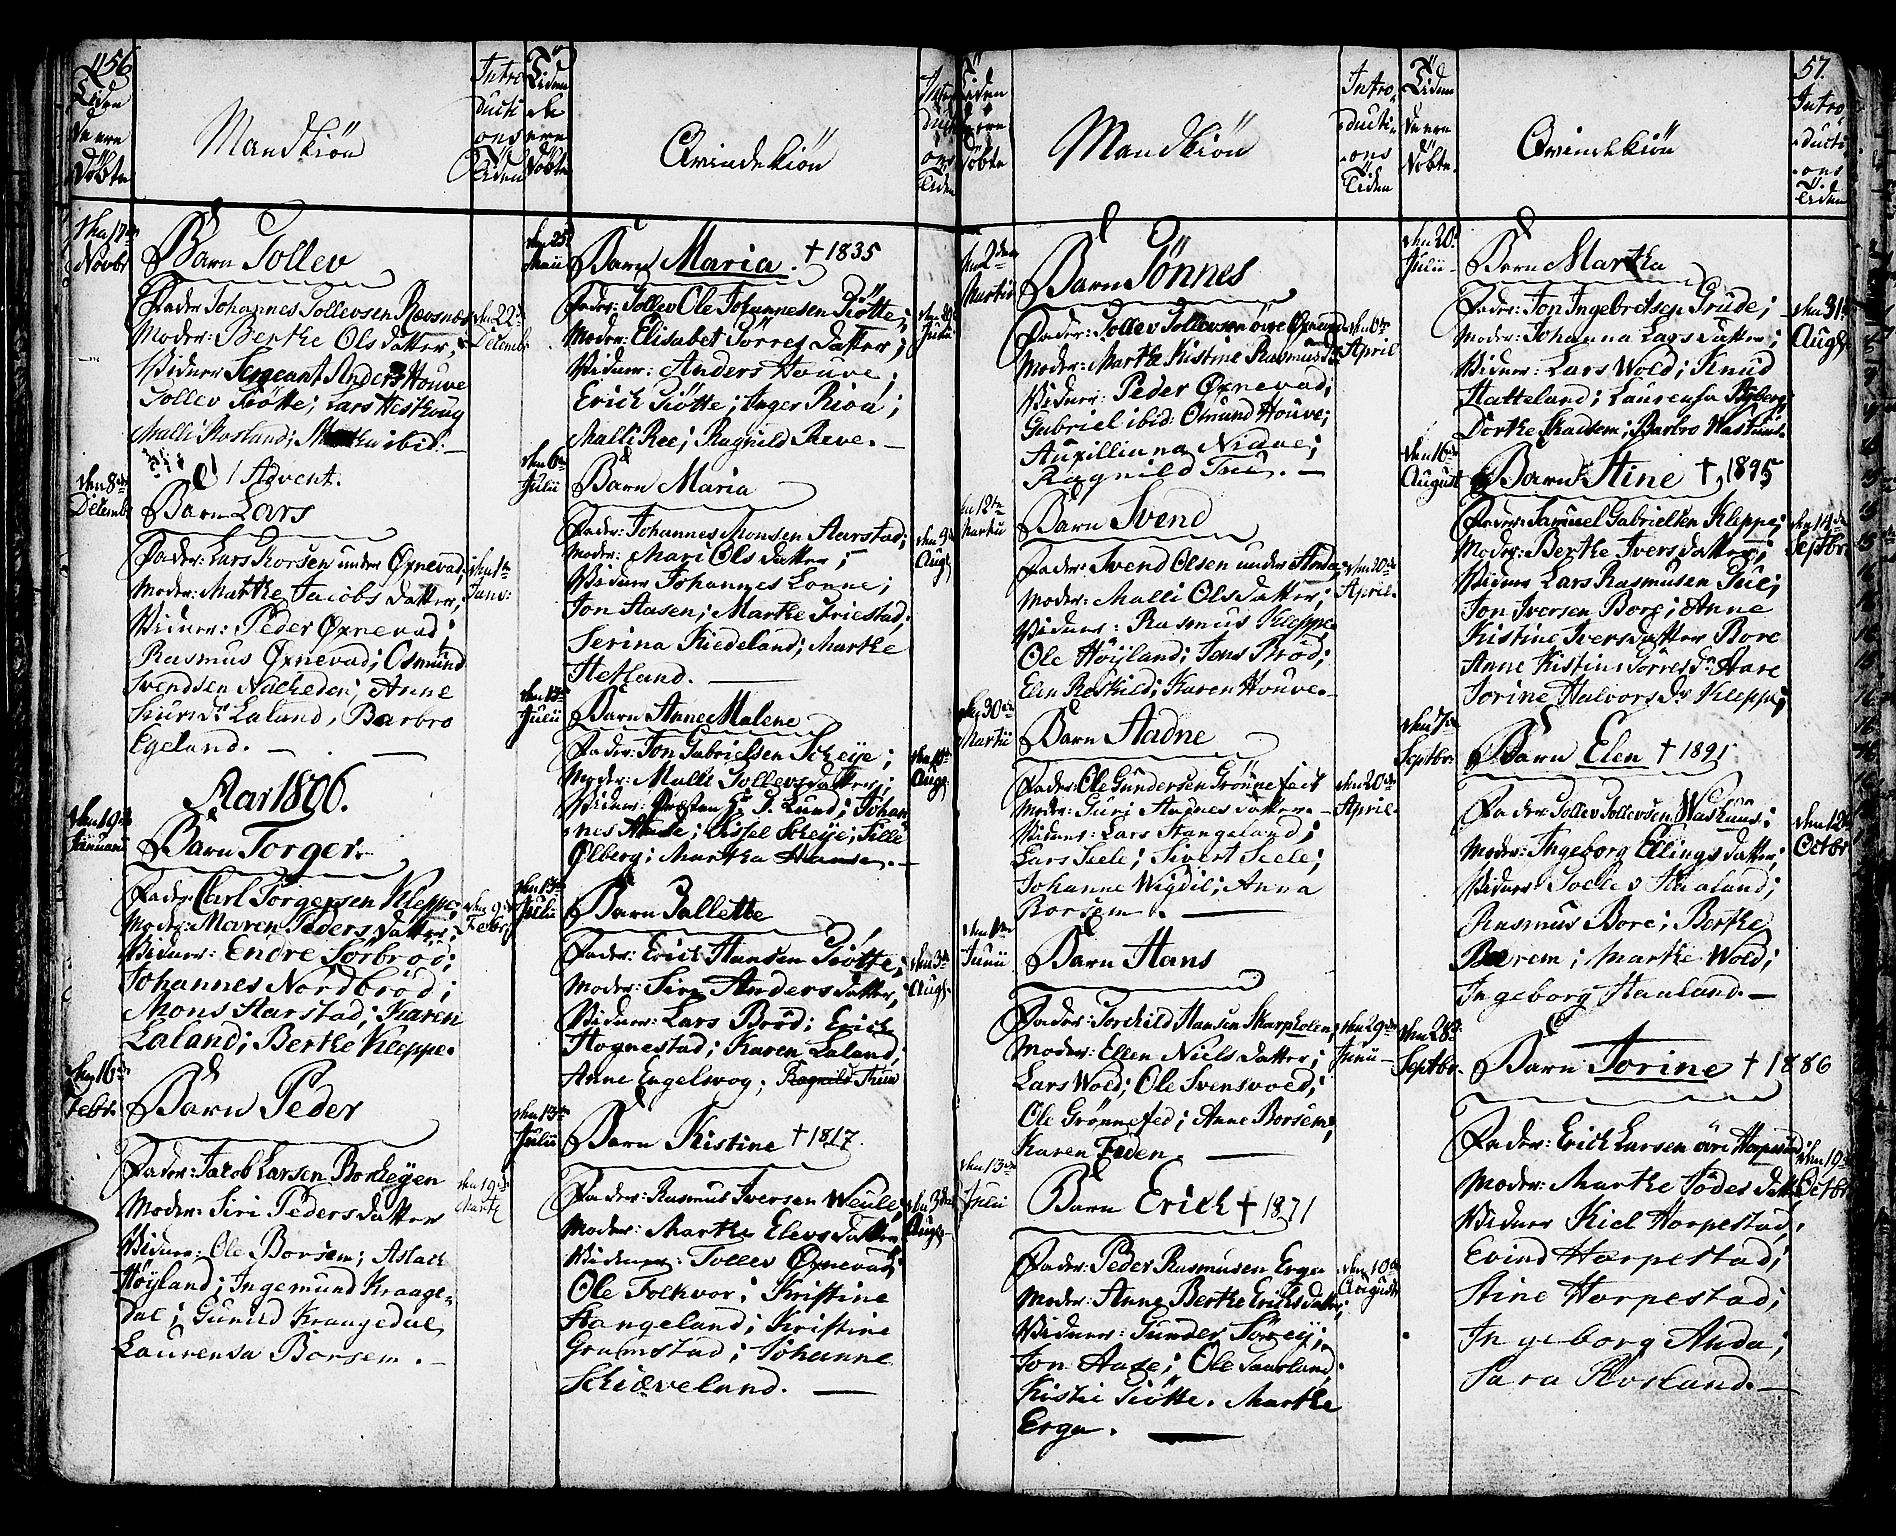 56
Tiden
de ere
Döbte
Mandkiön
Intro
ducti
ons
Tiden
Tiden
de
ere
Döbte
Qvindekiön
Intro
ducti
ons
Tiden
den 17de
Novbr
Barn Tollev
Fader: Johannes Tollevsen Rævsnæs
Moder: Berthe Ols Datter;
Vidner Sergeant Anders Houve
Tollev Tiötte; Lars
Malli Rosland; Martha ibid. —
den 22de
Decemb.
1 Advent.
den 8de
Decemb
Barn Lars
Fader: Lars Korsen under Øxnevad;
Moder: Marthe Jacobs Datter;
Vidner: Peder Øxnevad;
Rasmus Øxnevad; Osmund
Svendsen Nacheden; Anne
Siurs Dr Laland, Barbro
Egeland. — —
den 1te
Janv:
Aar 1806.
den 19de
Januarii
Barn Torger.
Fader: Carl Torgersen Kleppe;
Moder: Maren Peders Datter;
Vidner: Endre Sörbröd;
Johannes Nordbröd;
Mons Harstad; Karen
Laland; Berthe Kleppe.
den 9de
Febr
den 16de
Febr:
Barn Peder
Fader: Jacob Larsen Borshejen
Moder: Siri Peders Datter
Vidner: Ole Borsem; Aslach
Höyland; Ingemund Kraage-
dal; Gunild Kraagedal,
Laurensa Borsem. —
den 19de
Marti
den 25de
Maii
Barn Maria. † 1835
Fader: Tollev Ole Johannesen Tiötte;
Moder: Elisabet Törres Datter;
Vidner: Anders Houve;
Erich Tiötte; Inger Risa;
Malli Ree; Ragnild Reve. —
Julii
den 6te
Julii
Barn Maria
Fader: Johannes Monsen Aarstad;
Moder: Mari Ols Datter;
Vidner Johannes Lonne;
Jon Aasen; Marthe Friestad;
Serina Kiedeland; Marthe
Hetland. —
den 3de
Aug
den 13de
Julii
Barn Anne Malene
Fader: Jon Gabrielsen Scheje;
Moder: Malli Tollevsdatter;
Vidner: Prosten Hr. P. Lund; Johan-
nes; Sissel Scheje; Sille
Ølberg; Martha. —
Aug
den 13de
Julii
Barn Tallette
Fader: Erich Hansen Tiötte;
Moder: Siri Anders Datter;
Vidner: Lars Bröd; Erich
Hognestad; Karen Laland;
Anne Engelsvog; Ragnild Thu
den 3de
Aug.
den 13de
Julii
Barn Kistine † 1817.
Fader: Rasmus Iversen Weule;
Moder: Marthe Elevs Datter
Vidner: Tollev Øxnevad;
Ole Folkvor; Kristine
Stangeland; Kristine
Grumstad; Johanne
Schiæveland. —
den 3de
Aug
Tiden
de ere
Döbte
Mandkiön
Intro-
ducti-
ons
Tiden
Tiden
de ere
Döbte
Qvindekiön
57.
Intro-
ducti-
ons
Tiden
den 2den
Martii
Barn Tönnes
Fader: Tollev Tollevsen övre Øxnevad
Moder: Marthe Kistine Rasmus Dr
Vidner: Peder Øxnevad;
Gabriel ibid. Omund Houve;
Auxilliana Niave;
Ragnild Tue. —
den 6te
April
den 12te
Martii
Barn Svend
Fader: Svend Olsen under
Moder: Malli Ols Datter;
Vidner: Rasmus Kleppe
Ole Höyland; Jens Bröd;
Elen Roshild; Karen Houve. —
den 20de
April.
den 30de
Martii
Barn Aadne
Fader: Ole Gundersen Grönnefest
Moder: Guri Aadnes Datter. —
Vidner: Lars Stangeland;
Lars Seele; Sivert Seele;
Johanne Wigdil; Anna
Borsem. —
den 20de
April
den 1te
Junii
Barn Hans
Fader: Torchild Hansen Skarpholen;
Moder: Ellen Niels Datter;
Lars Wold; Ole Svensvold;
Ole Grönnefed; Anne Borsem;
Karen Feden. —
den 29de
Junii —
den 13de
Julii
Barn Erich † 1871
Fader: Peder Rasmusen Erga
Moder: Anne Berthe Erichs Datter;
Vidner: Gunder Sörrej;
Jon Aase; Ole Saurland;
Kistie Tiötte. Marthe
Erga. —
den 10de
August
den 20de
Julii
Barn Martha
Fader: Jon Ingebretsen Grude;
Moder: Johanna Lars Datter;
Vidner: Lars Wold; Knud
Hatteland; Laurensa Ryberg;
Dorthe Skadsem; Barbro Waskuus.
den 31te
Aug
den 16de
August
Barn Stine † 1895
Fader: Samuel Gabrielsen Kleppe;
Moder: Berthe Iversdatter;
Vidner Lars Rasmusen Tue;
Jon Iversen Bore; Anne
Kistine Iversdatter Bore
Anne Kistine Torres Dr Aare
Torine Halvors Dr Kleppe;
den 14de
Septbr.
den 7de
Septbr.
Barn Elen † 1891
Fader: Tollev Tollevsen Waskuus;
Moder: Ingeborg Ellings Datter;
Vidner Hialand;
Rasmus Bore; Berthe
Bærem; Marthe Wold;
Ingeborg Hauland. —
den 12te
Octbr
den 28de
Septbr.
Barn Torine † 1886
Fader: Erich Larsen övre Horpestad
Moder: Marthe Födes Datter
Vidner Kiel Horpestad;
Evind Horpestad;
Stine Horpestad;
Ingeborg Anda;
Sara Rosland. —
den 19de
Octbr